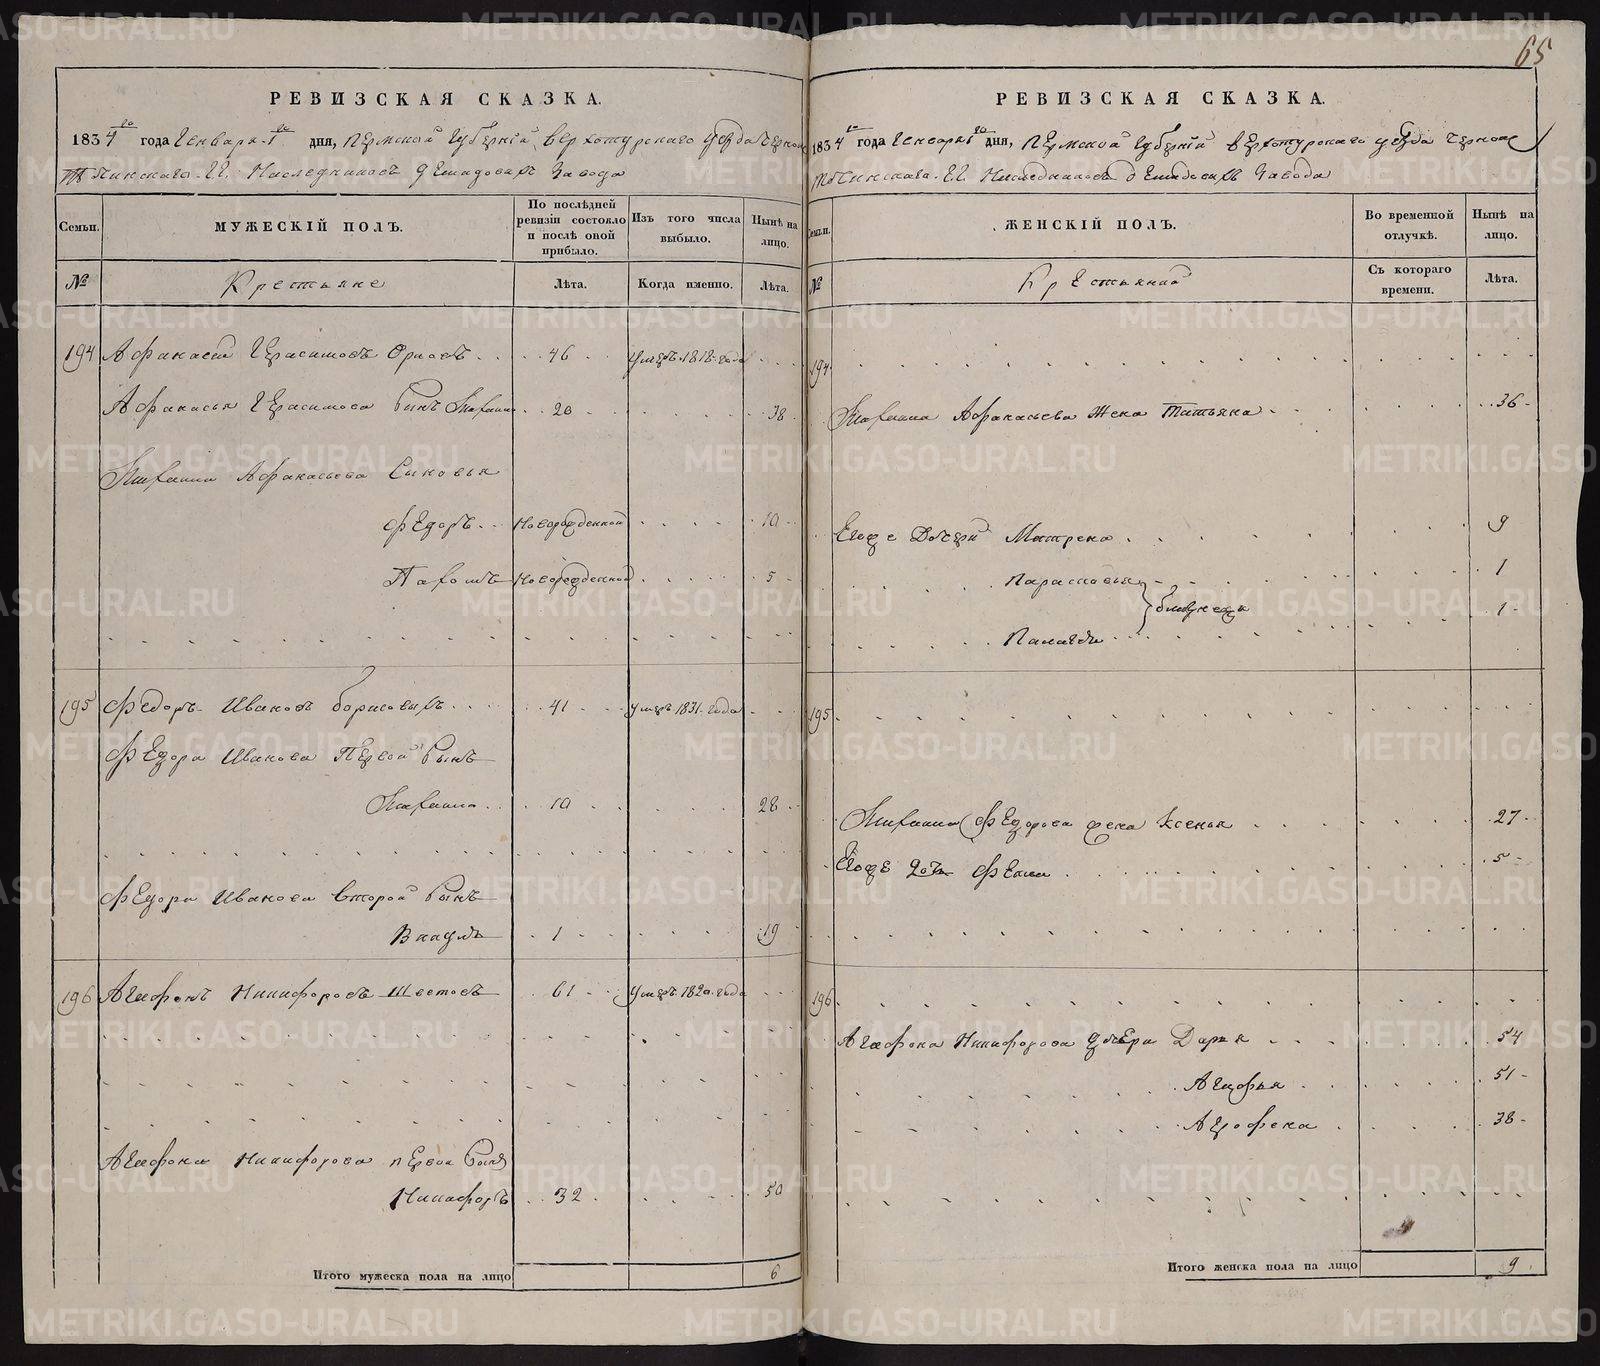 65
РЕВИЗСКАЯ СКАЗКА.
1834го года Генваря 1го дня, Пермской Губернiй Верхотурского уезда Черно
Наследниковъ Демидовыхъ Завода
Семьи.
МУЖЕСКІЙ ПОЛЪ.
По послѣдней ревизіи состояло и послѣ оной прибыло.
Изъ того числа выбыло.
Нынѣ на лицо.
№
Крестьяне
Лѣта.
Когда именно.
Лѣта.
194 Афанасей Герасимовъ Орловъ 46 умеръ 1818 года
Афанасья Герасимова Сынъ Михаила 20 38
Михаила Афанасьева Сыновья
Федоръ Новорожденной 10
Пахомъ Новорожденной 5
195 Федоръ Ивановъ Борисовыхъ 41 умеръ 1831 года
Федора Иванова Первой Сынъ
Михаила 10 28
Федора Иванова Второй Сынъ
1 19
196 Агафонъ Никифоровъ Шветовъ 61 умеръ 1820 года
Агафона Никифорова первой Сынъ
Никифоръ 32 50
Итого мужеска пола на лицо 6
РЕВИЗСКАЯ СКАЗКА.
1834го года Генваря 1го дня, Пермской Губернiй Верхотурского уезда Черно
Наследниковъ Демидовыхъ Завода
Семьи.
ЖЕНСКІЙ ПОЛЪ.
Во временной отлучкѣ.
Нынѣ на лицо.
№
Крестьяний
Съ котораго времени.
Лѣта.
194
Михаила Афанасьева Жена Татьяна 36
Егоже Дочери Матрена 9
Парасковья 1
близнецы 1
Палагея
195
Михаила Федорова жена Ксенья 27
Егоже дочь Фекла 5
196
Агафона Никифорова дочери Дарья 54
Агафья 51
Аграфена 38
Итого женска пола на лицо 9